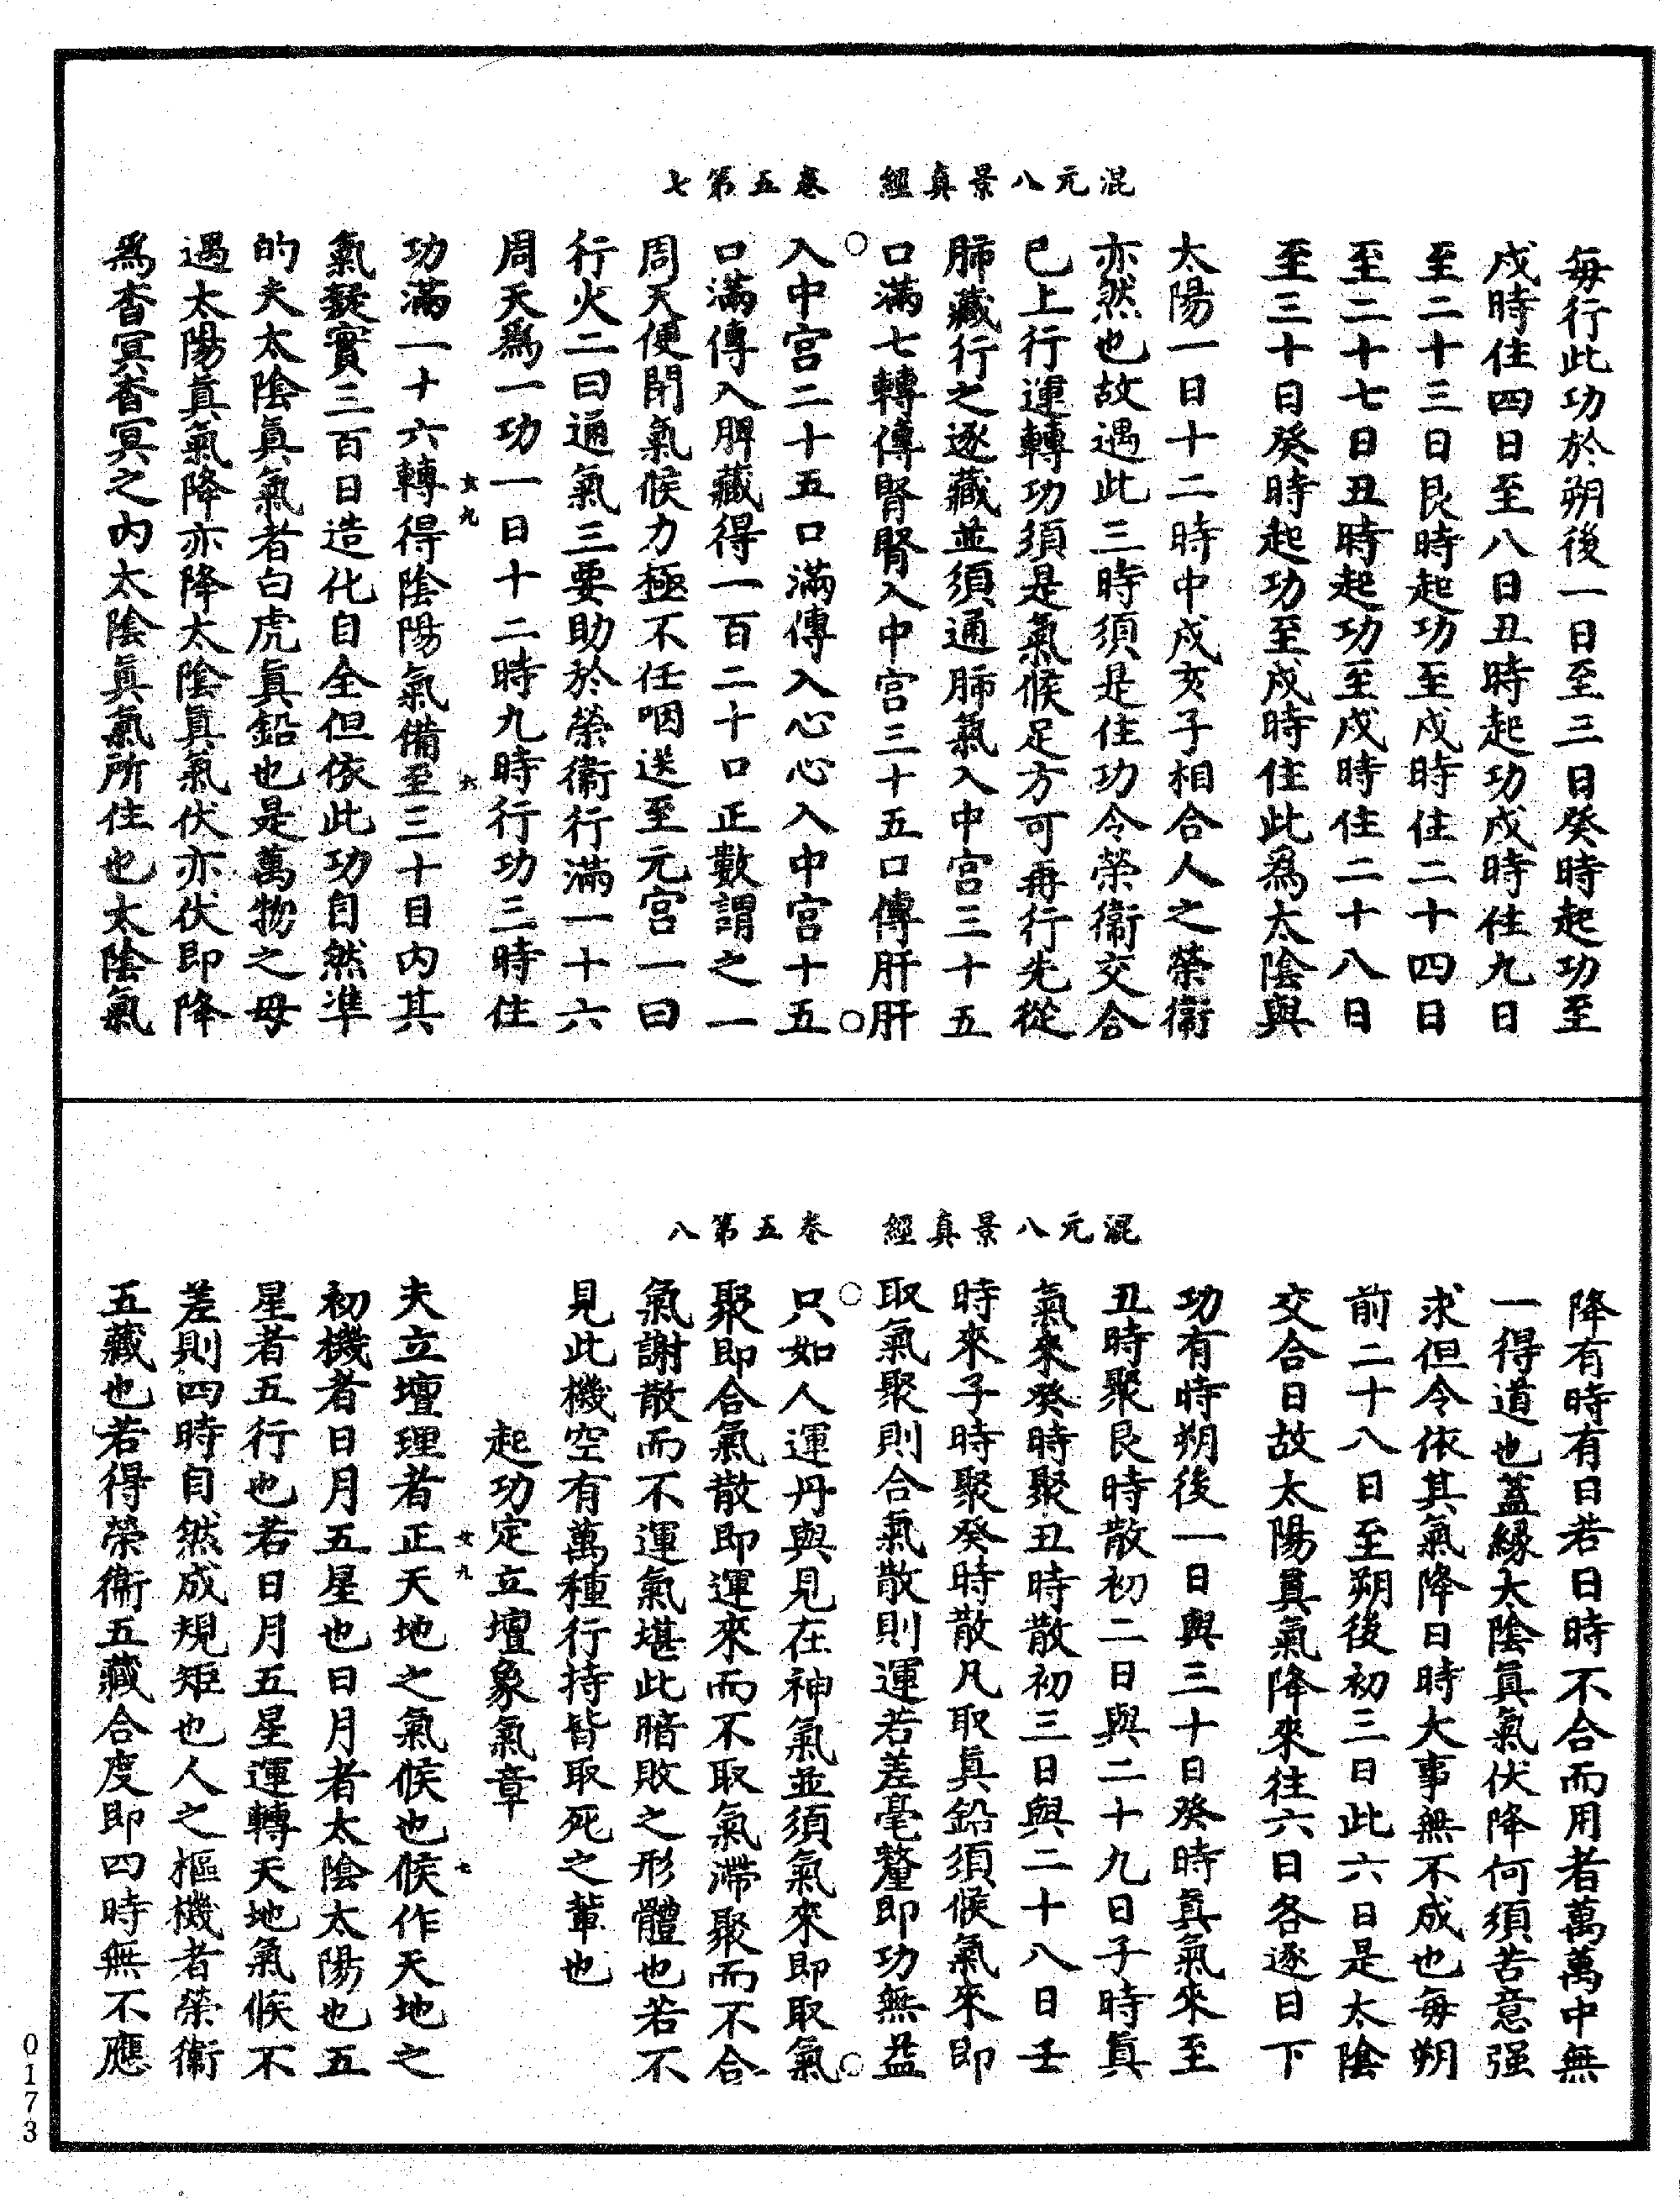 混元八景真經　卷五第七
每行此功於朔後一日至三日癸時起功至
戌時住四日至八日丑時起功戌時住九日
至二十三日艮時起功至戌時住二十四日
至二十七日丑時起功至戌時住二十八日
至三十日癸時起功至戌時住此爲太陰與
太陽一日十二時中戌亥子相合人之榮衛
亦然也故遇此三時須是住功令榮衛交合
已上行運轉功須是氣候足方可再行先從
肺藏行之逐藏並須通肺氣入中宮三十五
口滿七轉傳腎腎入中宮三十五口傳肝肝
入中宮二十五口滿傳入心心入中宮十五
口滿傳入脾藏得一百二十口正數謂之一
周天便閉氣候力極不任咽送至元宮一曰
行火二曰通氣三要助於榮衛行滿一十六
周天爲一功一日十二時九時行功三時住
女九　六
功滿一十六轉得陰陽氣備至三十日內其
氣凝實三百日造化自全但依此功自然準
的夫太陰真氣者白虎真鉛也是萬物之母
遇太陽真氣降亦降太陰真氣伏亦伏即降
爲杳冥杳冥之內太陰真氣所住也太陰氣
混元八景真經　卷五第八
降有時有日若日時不合而用者萬萬中無
一得道也蓋緣太陰真氣伏降何須苦意强
求但令依其氣降日時大事無不成也每朔
前二十八日至朔後初三日此六日是太陰
交合日故太陽真氣降來往六日各逐日下
功有時朔後一日與三十日癸時真氣來至
丑時聚艮時散初二日與二十九日子時真
氣來癸時聚丑時散初三日與二十八日壬
時來子時聚癸時散凡取真鉛須候氣來即
取氣聚則合氣散則運若差毫釐即功無益
只如人運丹與見在神氣並須氣來即取氣
聚即合氣散即運來而不取氣滯聚而不合
氣謝散而不運氣堪此暗敗之形體也若不
見此機空有萬種行持皆取死之輩也
起功定立壇象氣章
女九　七
夫立壇理者正天地之氣候也候作天地之
初機者日月五星也日月者太陰太陽也五
星者五行也若日月五星運轉天地氣候不
差則四時自然成規矩也人之樞機者榮衛
五藏也若得榮衛五藏合度即四時無不應
0173